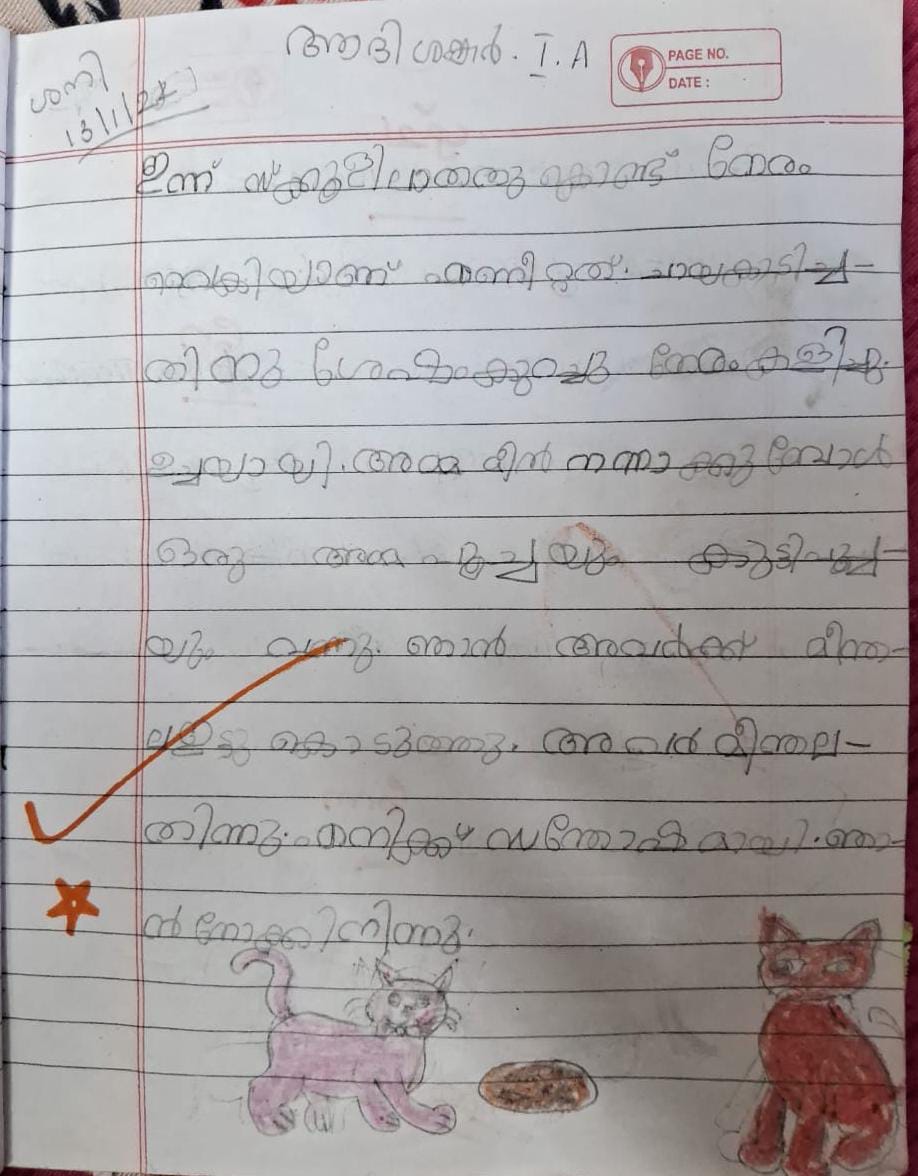 ആദിശങ്കർ. I. A
PAGE NO.
DATE :
ശനി
13/1/24
ഇന്ന് സ്ക്കൂളില്ലാത്തതു കൊണ്ട് നേരം
വൈകിയാണ് എണീറ്റത്. ചായകുടിച്ച-
തിന്നു ശേഷംകുറച്ചു നേരംകളിച്ചു.
ഉച്ചയായി. അമ്മ മീൻ നന്നാക്കുമ്പോൾ
ഒരു അമ്മ പൂച്ചയും കുട്ടിപൂച്ച-
യും വന്നു. ഞാൻ അവർക്ക് മീന്ത-
ലഇട്ടു കൊടുത്തു. അവർ മീന്തല-
തിന്നു. എനിക്ക് സന്തോഷമായി. ഞാ-
ൻനോക്കിനിന്നു.